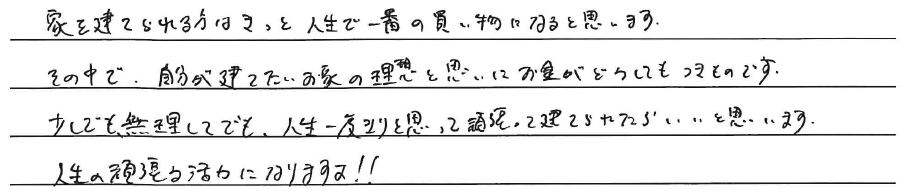 家を建てられる方はきっと人生で一番の買い物になると思います.
その中で、自分が建てたいお家の理想と思いにお金がどうしてもつきものです.
少しでも無理してでも、人生一度きりと思って頑張って建てられたらいいと思います.
人生の頑張る活力になりますよ!!